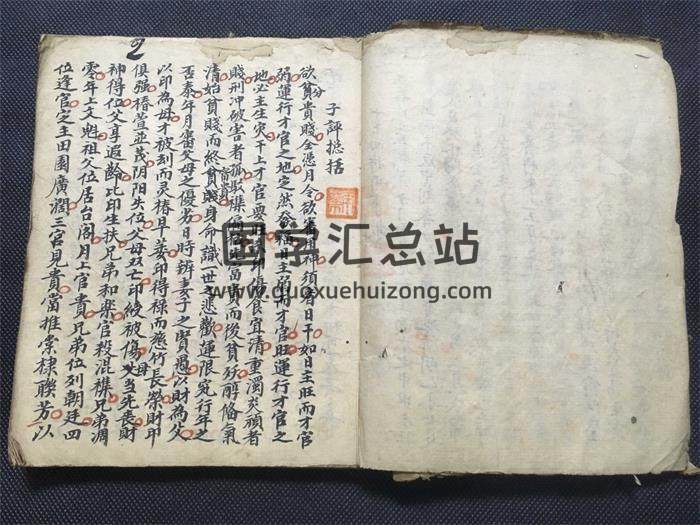 2
子評捴括
欲分貧貴賤全憑月令欲禍福須日干如日主旺而才官
弱運行才官之地定然發福日主弱而才官旺運行才官之
地必主生灾干上才官要傷食宜清重濁炎頑者
賤刑冲破害者駁襍富貴而後貧妖醇偹氣
清始貧賤而終富貴貧賤身命識一世之悲歡運限究行年之
否泰年月審父母之優劣日時辨妻子之賢愚以財為父
以印為母才被刦而灵椿早萎印得禄而慈竹長榮財印
俱强椿萱並茂阴阳失位父母双亡印綬被傷母當先喪財
神得位父享遐齡比印生扶兄弟和樂官殺混襍兄弟凋
零年上文魁祖父位居台閣月上官貴兄弟位列朝廷四
位逢官定主田園廣濶三宮見貴當推棠棣聯芳以
国学汇总站
www.guoxuehuizong.com